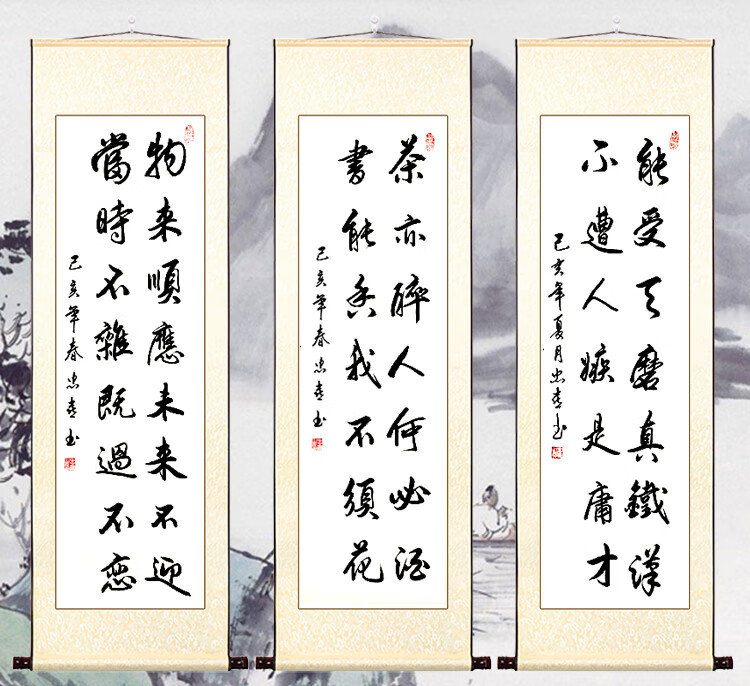 能受天磨真鐵漢
不遭人嫉是庸才
己亥年夏月忠书
茶亦醉人何必酒
書能香我不須花
己亥年春忠书
物来順應未来不迎
當時不雜既過不恋
己亥年春忠书